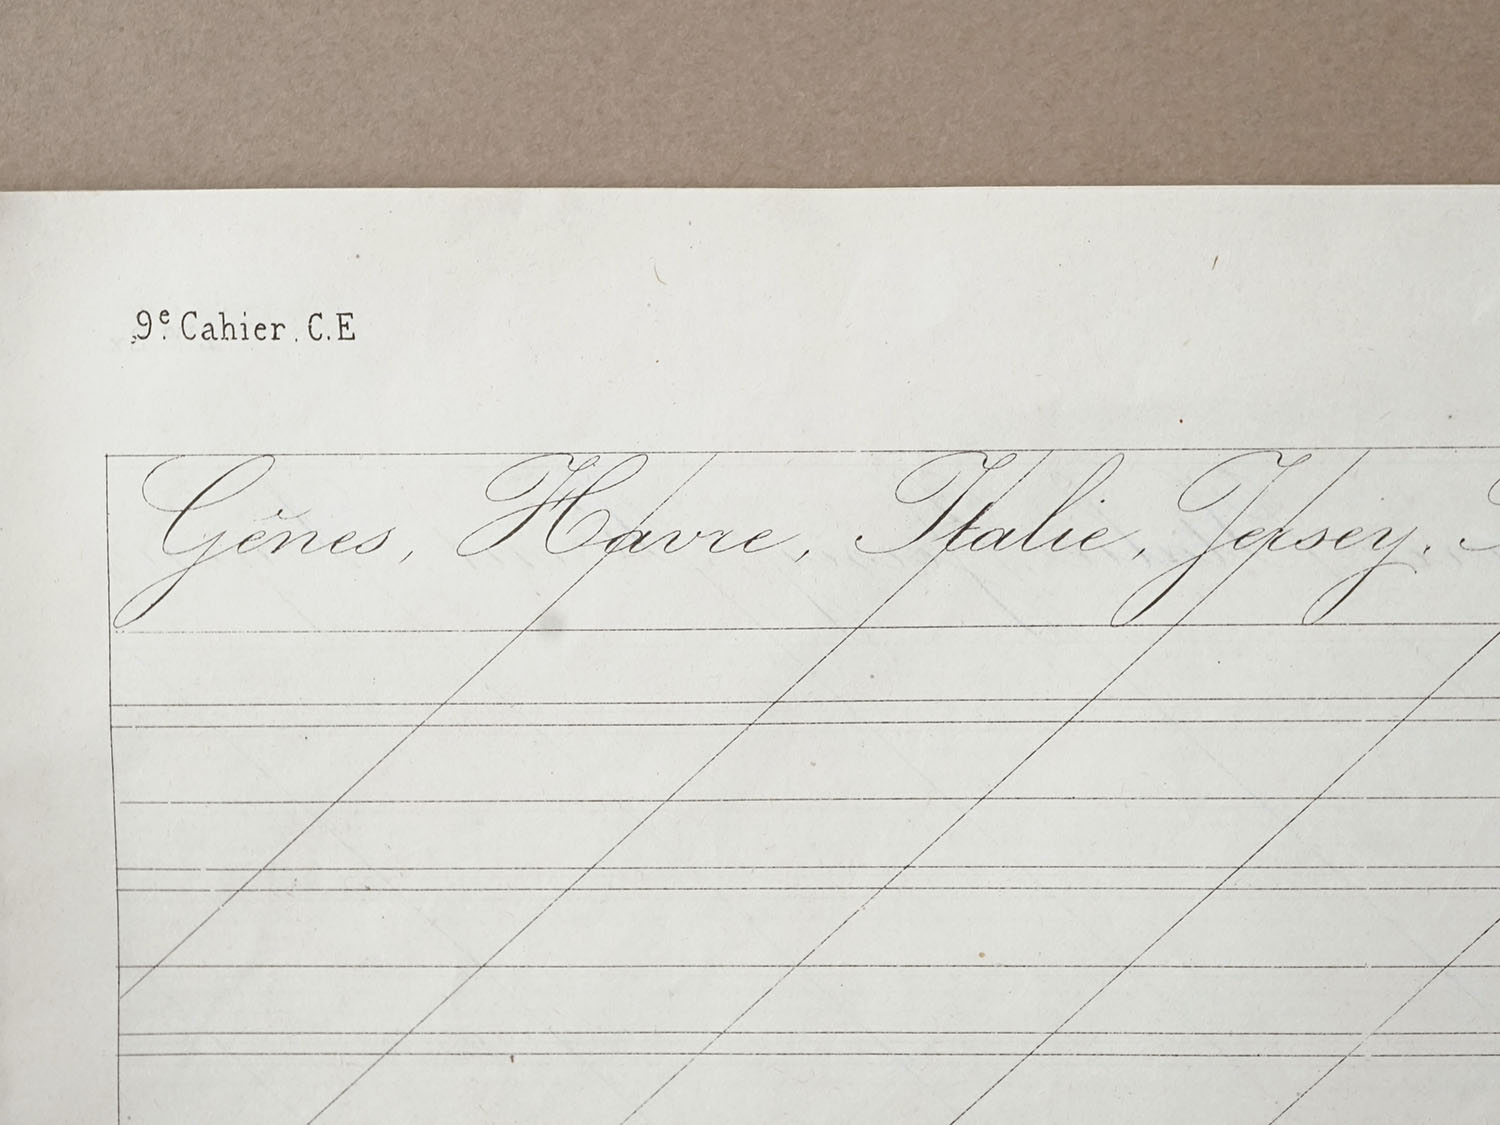 9e Cahier. C.E
Gênes, Havre, Italie, Jersey.